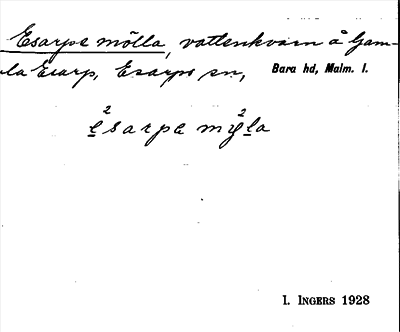 Esarpe mölla, vattenkvarn å Gam-
la Esarp, Esarps sn, Bara hd, Malm. l.
e²sarpa my²la
I. INGERS 1928